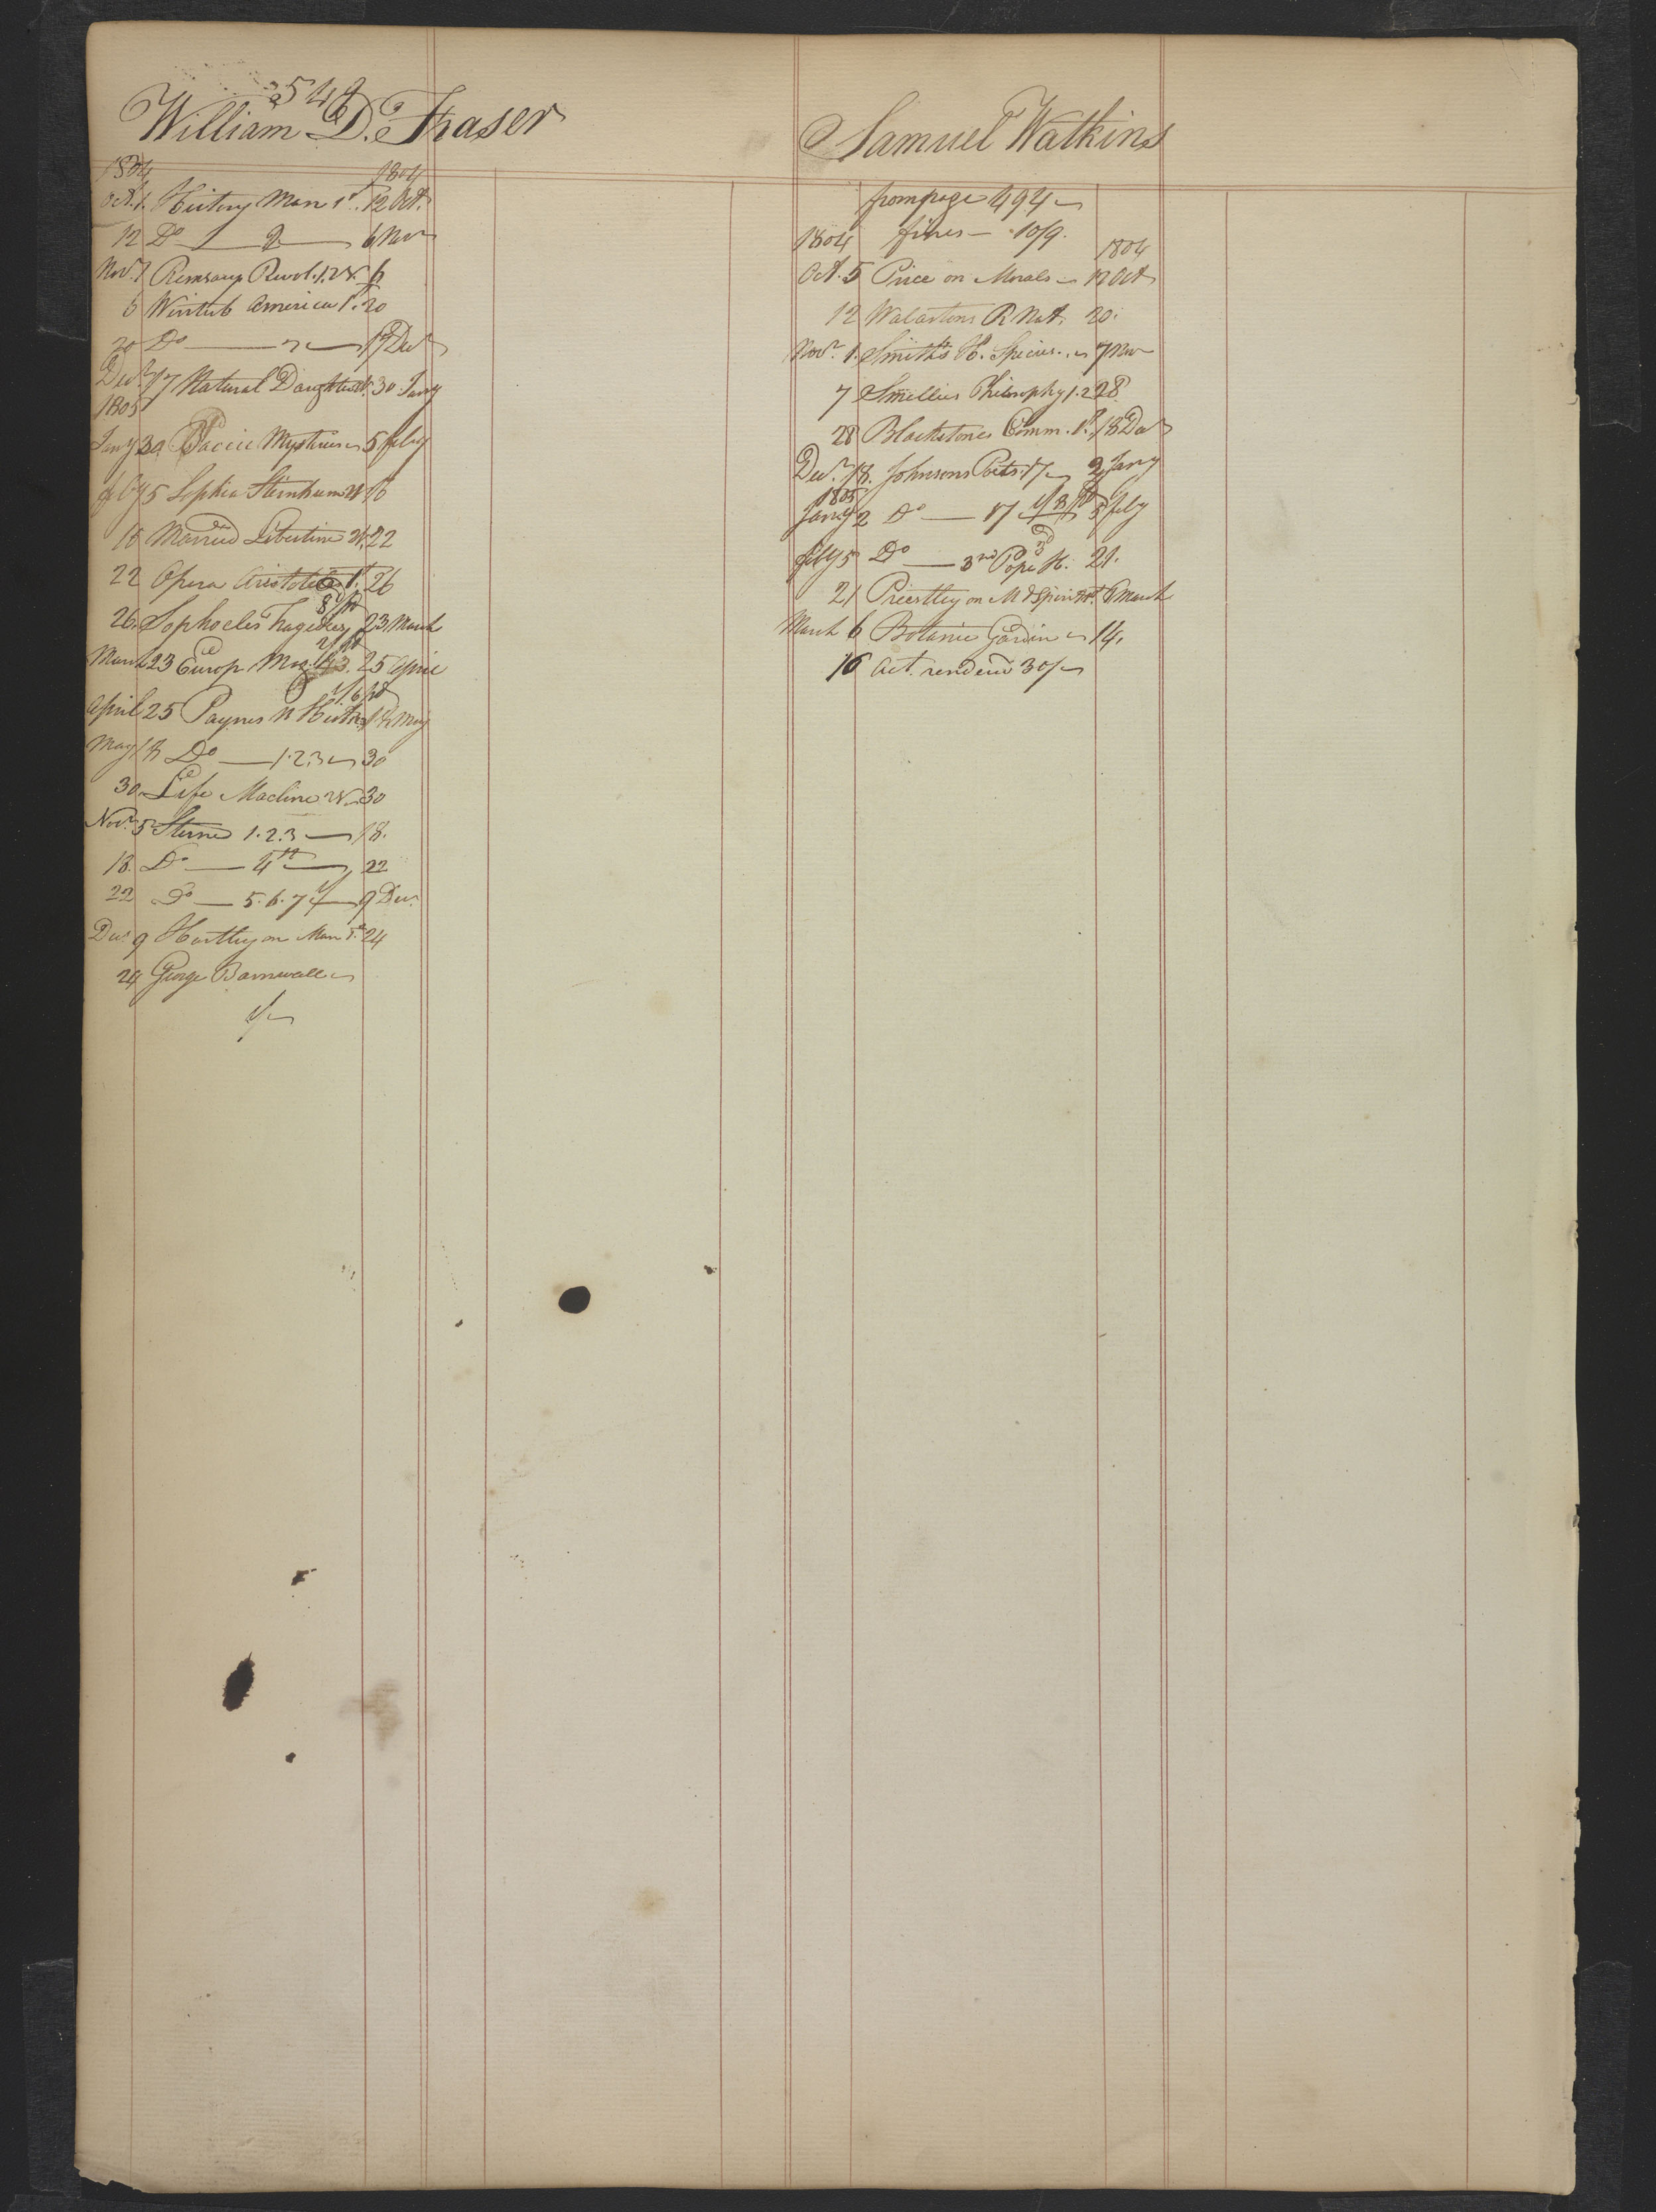 549
William D. Fraser
1804 1804
Oct. 1. History Man 1st. 12 Oct.
12 Do 2 6 Nov
Nov. 1 Remsays Revol. 1.2d. 6
6 Wintnb America 1st. 20
20 Do 17 Decr
Decr 17 Natural Daughter 30 Jany
1805
Jany 30 Paciie Mysteries 5 feby
feby 5 Sophia Sternheim 2d 16
16 Married Libertine 2d. 22
22 Opera Aristoteles 1st. 26
8/pd
26. Sophocles Tragedies 23 March
2/pd
March 23 Europ. Mag. 43. 25 April
1/6 pd
April 25 Paynes N Histy 18 May
May 18 Do 1.2.3 30
30 Life Macline 2d 30
Novr 5 Sterne 1.2.3 18.
18. Do 4th 22
22 Do 5.6.7 9 Decr.
Decr 9 Hartley on Man 1st 24
24 George Barnwall
1/
Samuel Watkins
from page 494
1804 fines 10/9. 1804
Oct. 5 Price on Morals 12 Oct
12 Walastons R Nat. 20.
Novr. 1. Smiths H. Species 7 Nov
7 Smellies Philosophy 1.2 28.
28 Blackstones Comm. 1st. 18 Decr
Decr. 18. Johnsons Poets. 17 2 Jany
1805
Jany 2 Do 17 1/3 pd 5 feby
feby 5 Do 3rd Pope H. 21.
21 Priestley on M & Spirit 6 March
March 6 Botanic Garden 14.
16 Act. renderd 30/